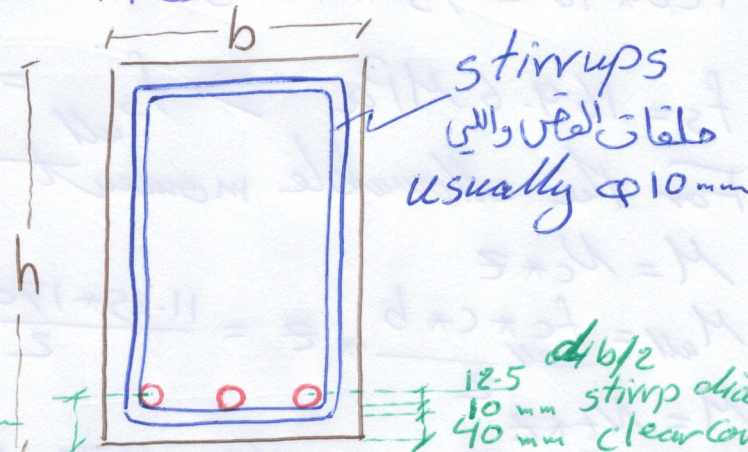 b
stirrups
حلقات القص واللي
usually φ10 mm
h
12.5 db/2
10 mm stirrp dia
40 mm clear cov